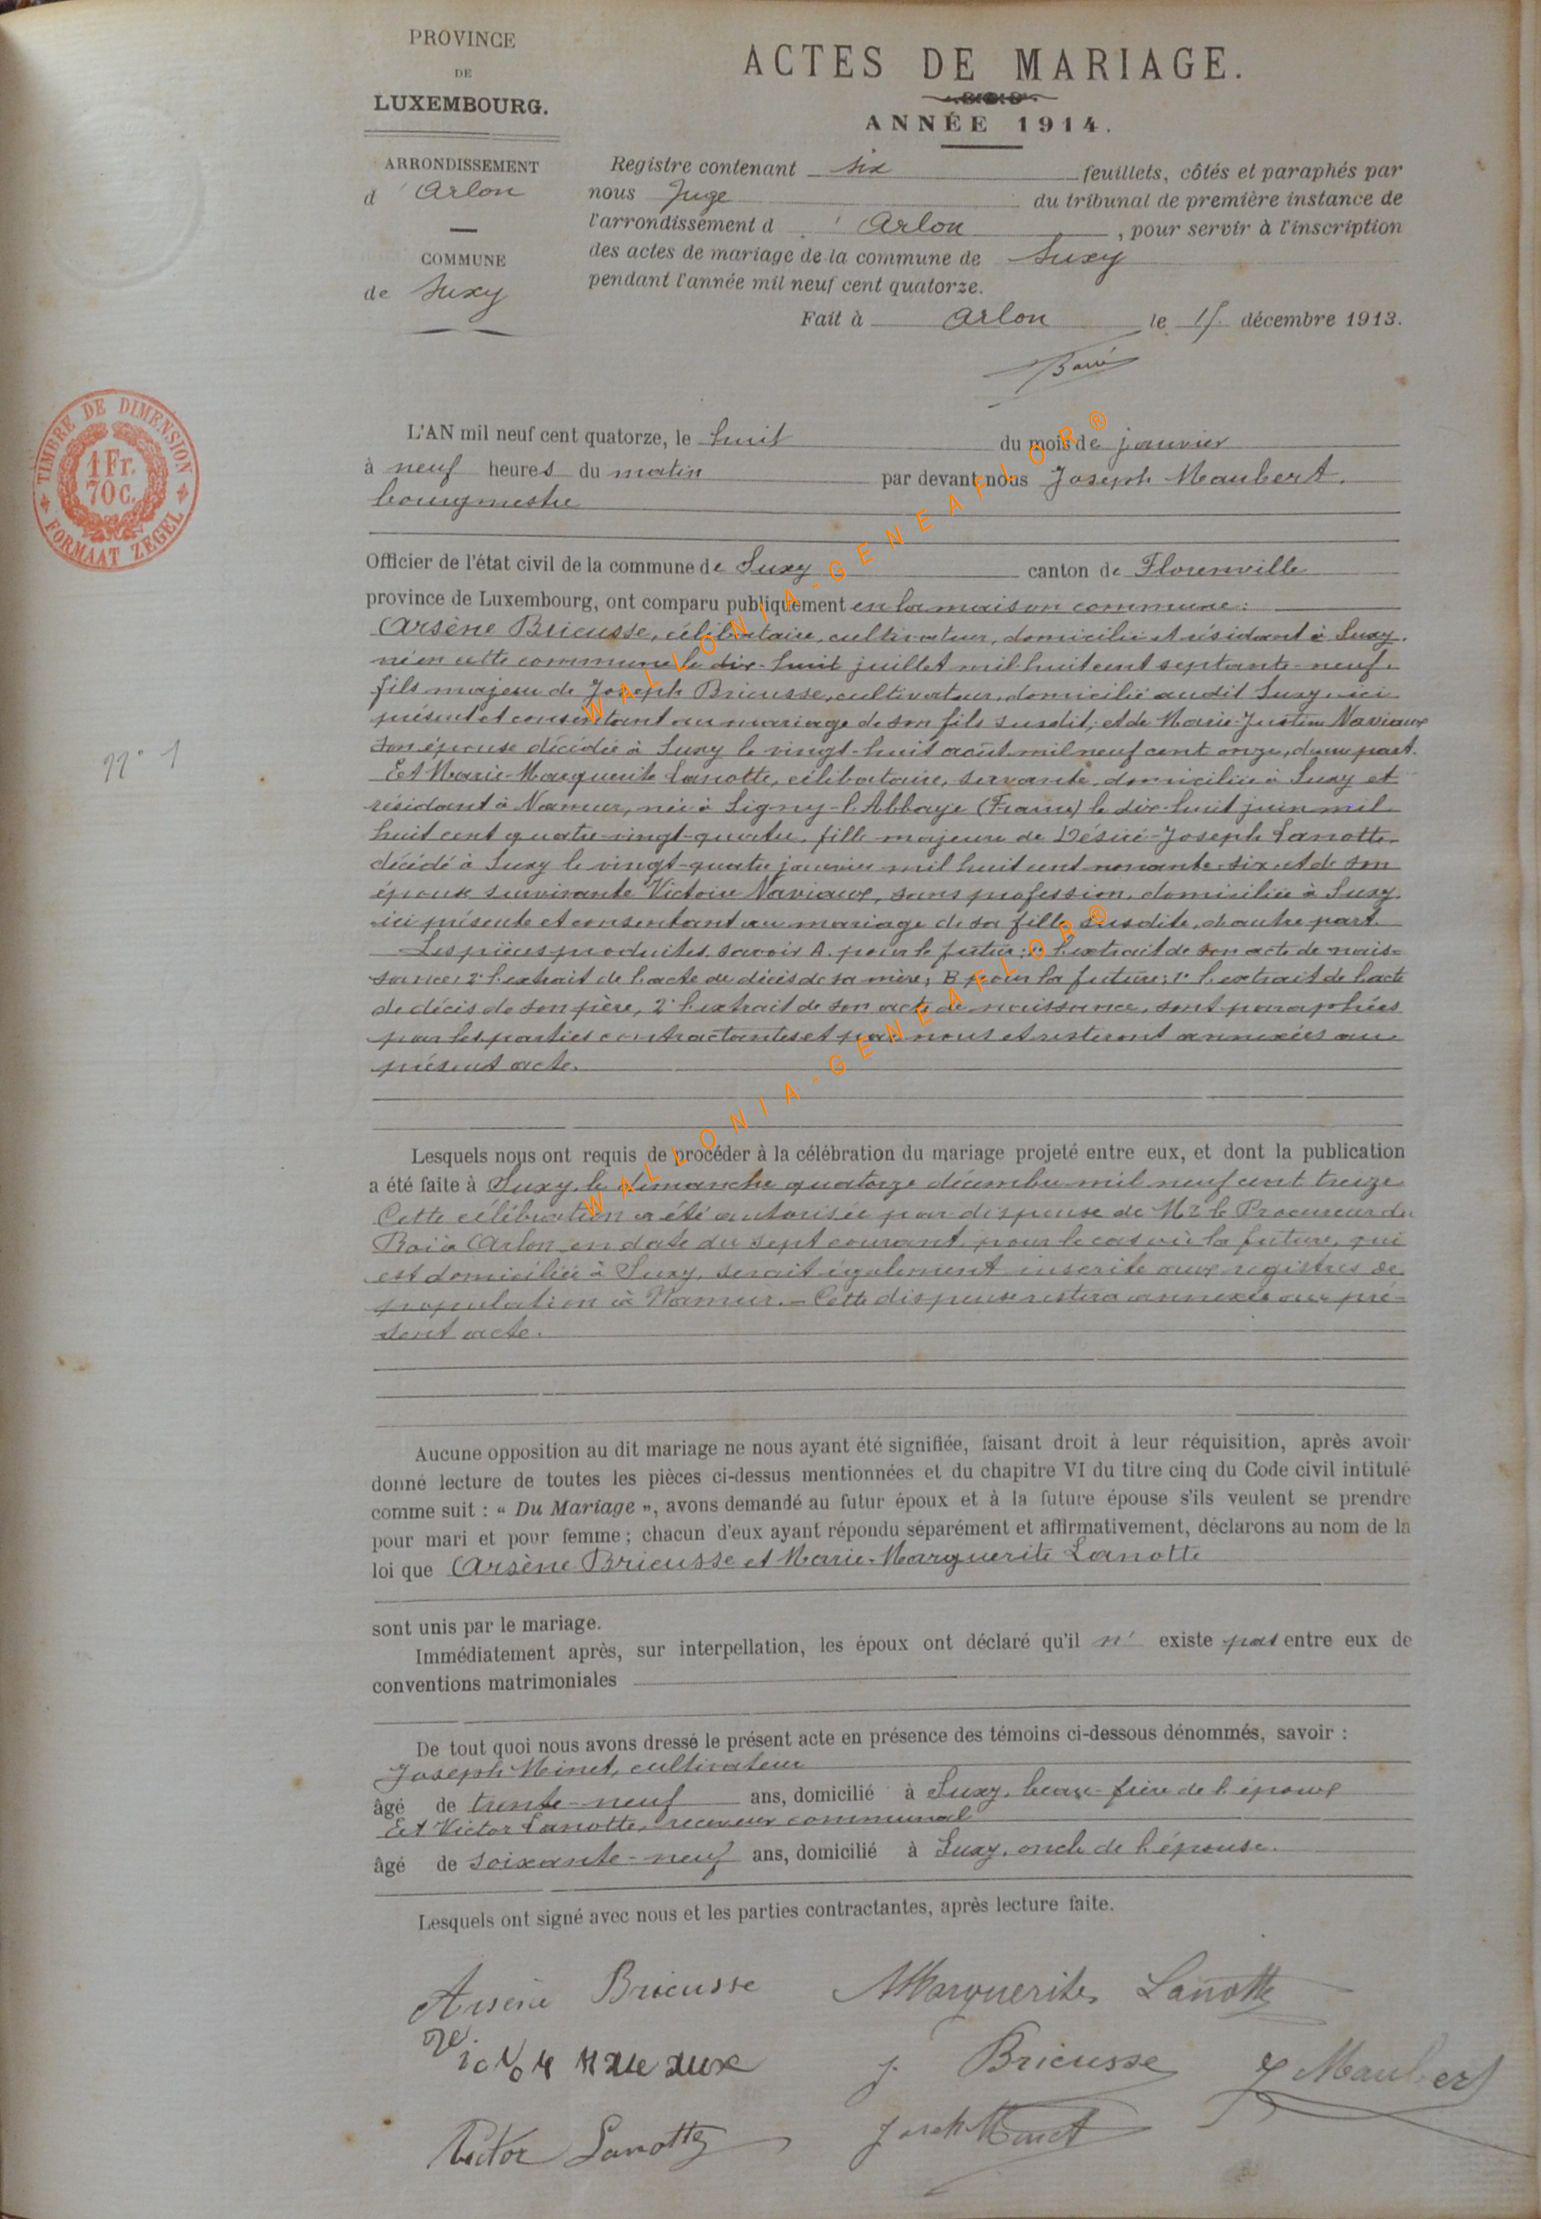 PROVINCE
DE
LUXEMBOURG.
ARRONDISSEMENT
d'Arlon
COMMUNE
de Suxy
ACTES DE MARIAGE.
ANNÉE 1914.
Registre contenant six feuillets, côtés et paraphés par
nous Juge du tribunal de première instance de
l'arrondissement d'Arlon, pour servir à l'inscription
des actes de mariage de la commune de Suxy
pendant l'année mil neuf cent quatorze.
Fait à Arlon le décembre 1913.
TIMBRE DE DIMENSION
1 Fr.
70 C.
FORMAAT ZEGEL
N° 1
L'AN mil neuf cent quatorze, le huit du mois de janvier
à neuf heures du matin par devant nous Joseph Maubert,
bourgmestre
Officier de l'état civil de la commune de Suxy canton de Florenville
province de Luxembourg, ont comparu publiquement en la maison commune:
Arsène Bricusse, célibataire, cultivateur, domicilié et résidant à Suxy,
né en cette commune le dix-huit juillet mil huit cent septante-neuf,
fils majeur de Joseph Bricusse, cultivateur, domicilié audit Suxy, ici
présent et consentant au mariage de son fils susdit, et de Marie-Justine Naviaux
son épouse décédée à Suxy le vingt-huit août mil neuf cent onze, d'une part.
Et Marie-Marguerite Lanotte, célibataire, servante, domiciliée à Suxy et
résidant à Namur, née à Signy-l'Abbaye (France) le dix-huit juin mil
huit cent quatre-vingt-quatre, fille majeure de Désiré-Joseph Lanotte,
décédé à Suxy le vingt-quatre janvier mil huit cent nonante-six et de son
épouse survivante Victoire Naviaux, sans profession, domiciliée à Suxy,
ici présente et consentant au mariage de sa fille susdite, d'autre part.
Les pièces produites, savoir A. pour le futur: 1° l'extrait de son acte de nais-
sance; 2° l'extrait de l'acte de décès de sa mère; B pour la future: 1° l'extrait de l'acte
de décès de son père, 2° l'extrait de son acte de naissance, sont paraphées
par les parties contractantes et par nous et resteront annexées au
présent acte.
Lesquels nous ont requis de procéder à la célébration du mariage projeté entre eux, et dont la publication
a été faite à Suxy, le dimanche quatorze décembre mil neuf cent treize
Cette célébration a été autorisée par dispense de Mr le Procureur du
Roi à Arlon en date du sept courant, pour le cas où la future, qui
est domiciliée à Suxy, serait également inscrite aux registres de
population à Namur. - Cette dispense restera annexée au pré-
sent acte.
Aucune opposition au dit mariage ne nous ayant été signifiée, faisant droit à leur réquisition, après avoir
donné lecture de toutes les pièces ci-dessus mentionnées et du chapitre VI du titre cinq du Code civil intitulé
comme suit : « Du Mariage », avons demandé au futur époux et à la future épouse s'ils veulent se prendre
pour mari et pour femme ; chacun d'eux ayant répondu séparément et affirmativement, déclarons au nom de la
loi que Arsène Bricusse et Marie-Marguerite Lanotte
sont unis par le mariage.
Immédiatement après, sur interpellation, les époux ont déclaré qu'il n' existe pas entre eux de
conventions matrimoniales
De tout quoi nous avons dressé le présent acte en présence des témoins ci-dessous dénommés, savoir :
Joseph Minet, cultivateur
âgé de trente-neuf ans, domicilié à Suxy, beau-frère de l'époux
Et Victor Lanotte, receveur communal
âgé de soixante-neuf ans, domicilié à Suxy, oncle de l'épouse.
Lesquels ont signé avec nous et les parties contractantes, après lecture faite.
Arsène Bricusse MMarguerite Lanotte
J. Bricusse J Maubert
Victor Lanotte Joseph Minet
WALLONIA-GENEAFLOR®
WALLONIA-GENEAFLOR®